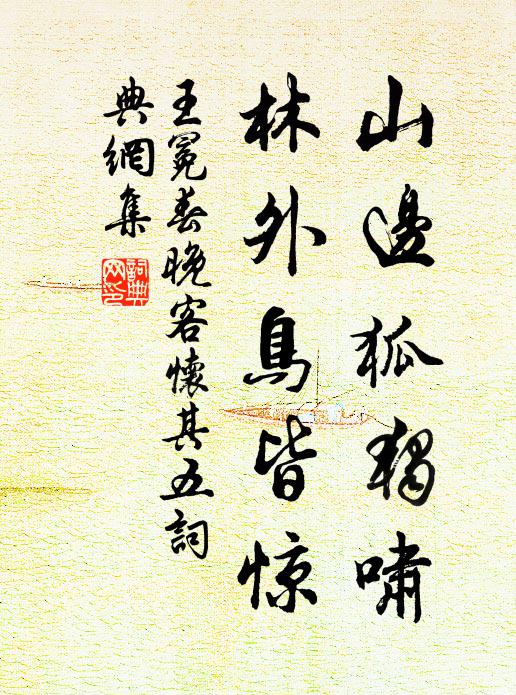 山邊狐獨嘯
林外鳥皆惊
王冕春晚客懷其五詞
典網集
詞典网印